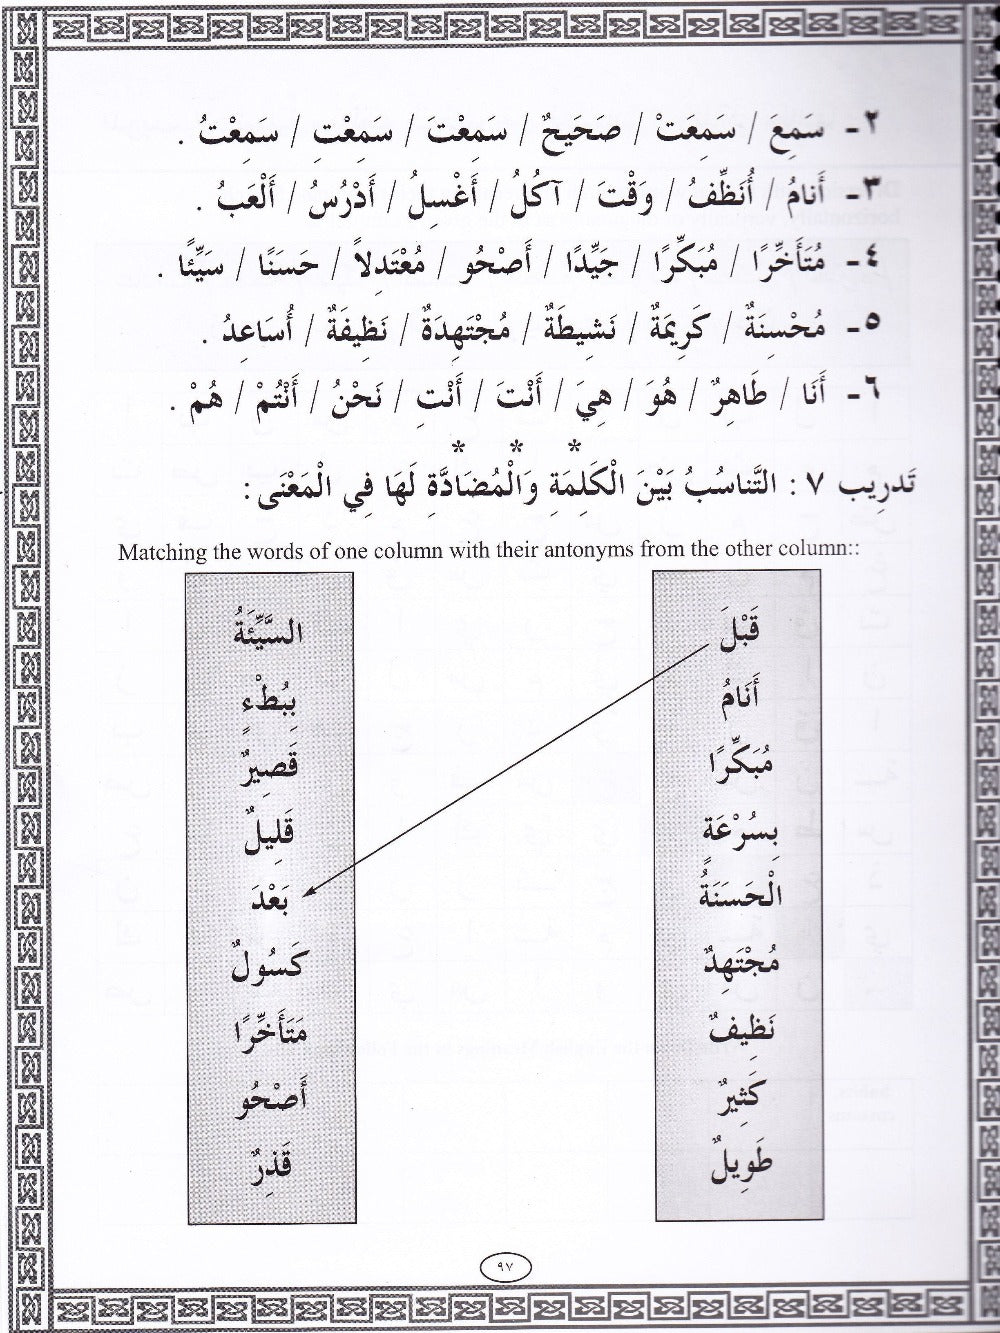 ٢- سَمِعَ / سَمِعَتْ / صَحَيْحٌ / سَمِعْتَ / سَمِعْتِ / سَمِعْتُ .
٣- أَنَامُ / أُنَظِّفُ / وَقْتَ / آكُلُ / أَغْسِلُ / أَدْرُسُ / أَلْعَبُ .
٤- مُتَأَخِّرًا / مُبَكِّرًا / جَيِّدًا / أَصْحُو / مُعْتَدِلاً / حَسَنًا / سَيِّئًا .
٥- مُحْسِنَةٌ / كَرِيمَةٌ / نَشِيطَةٌ / مُجْتَهِدَةٌ / نَظِيفَةٌ / أُسَاعِدُ .
٦- أَنَا / طَاهِرٌ / هُوَ / هِيَ / أَنْتَ / أَنْتِ / نَحْنُ / أَنْتُمْ / هُمْ .
* * *
تَدرِيب ٧ : التَّناسُبُ بَيْنَ الْكَلِمَةِ وَالْمُضَادَّةِ لَهَا فِي الْمَعْنَى :
Matching the words of one column with their antonyms from the other column::
قَبْلَ
أَنَامُ
مُبَكِّرًا
بِسُرْعَةٍ
الْحَسَنَةُ
مُجْتَهِدٌ
نَظِيفٌ
كَثِيرٌ
طَوِيلٌ
السَّيِّئَةُ
بِبُطْءٍ
قَصِيرٌ
قَلِيلٌ
بَعْدَ
كَسُولٌ
مَتَأَخِّرًا
أَصْحُو
قَذِرٌ
٩٧